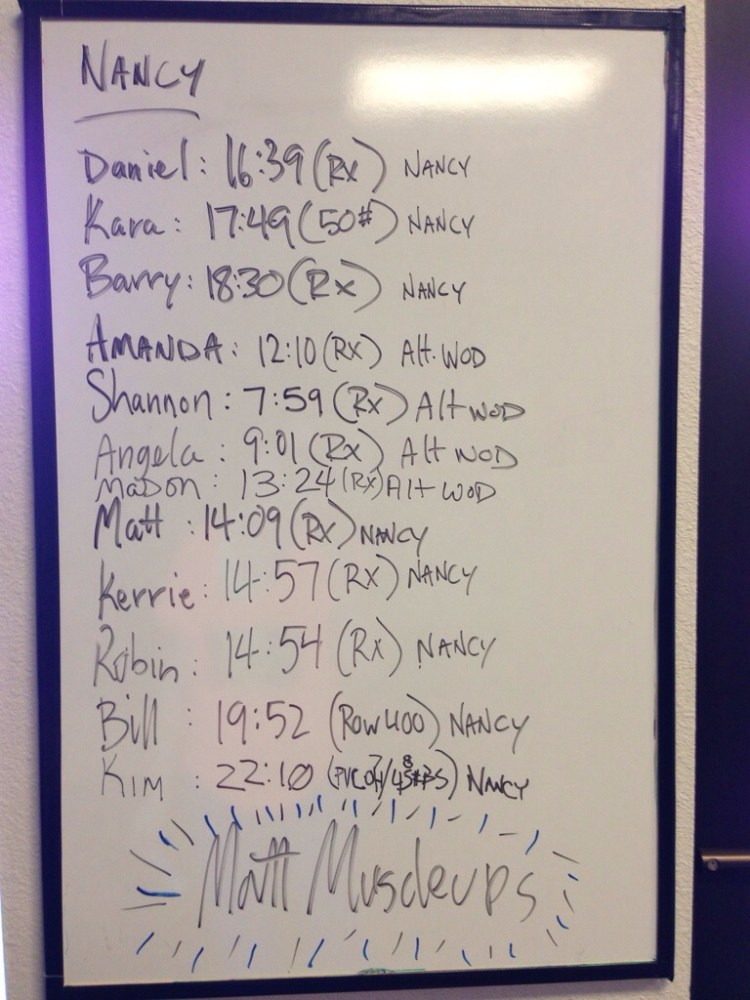 NANCY
Daniel: 16:39 (Rx) NANCY
Kara: 17:49 (50#) NANCY
Barry: 18:30 (Rx) NANCY
AMANDA: 12:10 (RX) Alt. WOD
Shannon: 7:59 (Rx) Alt WOD
Angela: 9:01 (Rx) Alt WOD
MaDon: 13:24 (Rx) Alt WOD
Matt: 14:09 (Rx) NANCY
Kerrie: 14:57 (RX) NANCY
Robin: 14:54 (Rx) NANCY
Bill: 19:52 (Row 400) NANCY
KIM: 22:10 NANCY
Matt Muscleups